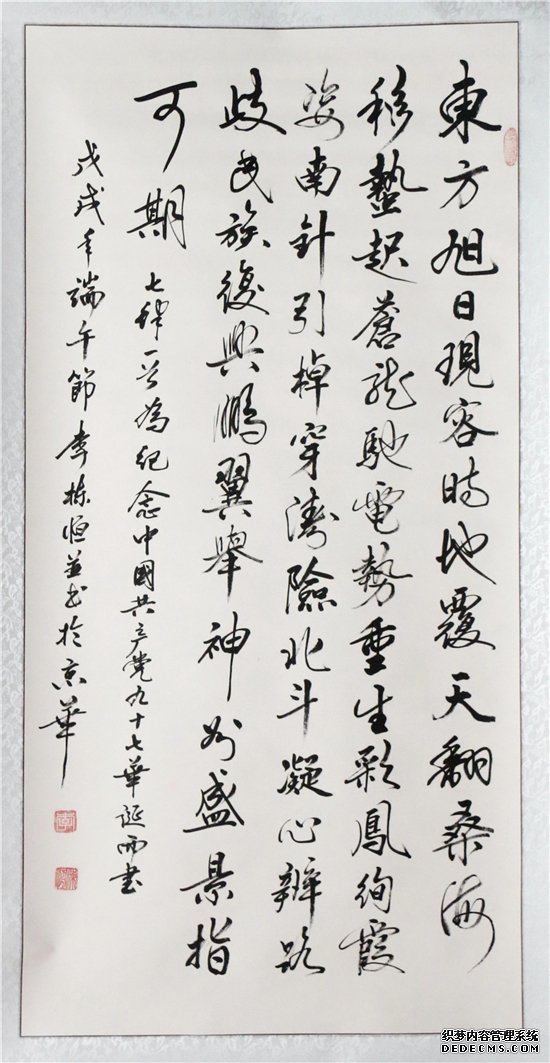 東方旭日現容時地覆天翻桑海
移蟄起蒼龍馳電勢重生彩鳳絢霞
姿南針引棹穿濤險北斗凝心辨路
歧民族復興鵬翼舉神州盛景指
可期
七律一首為紀念中國共产党九十七華誕而書
戊戌年端午節李栋恒並书於京華
织梦内容管理系统
DEDECMS.COM